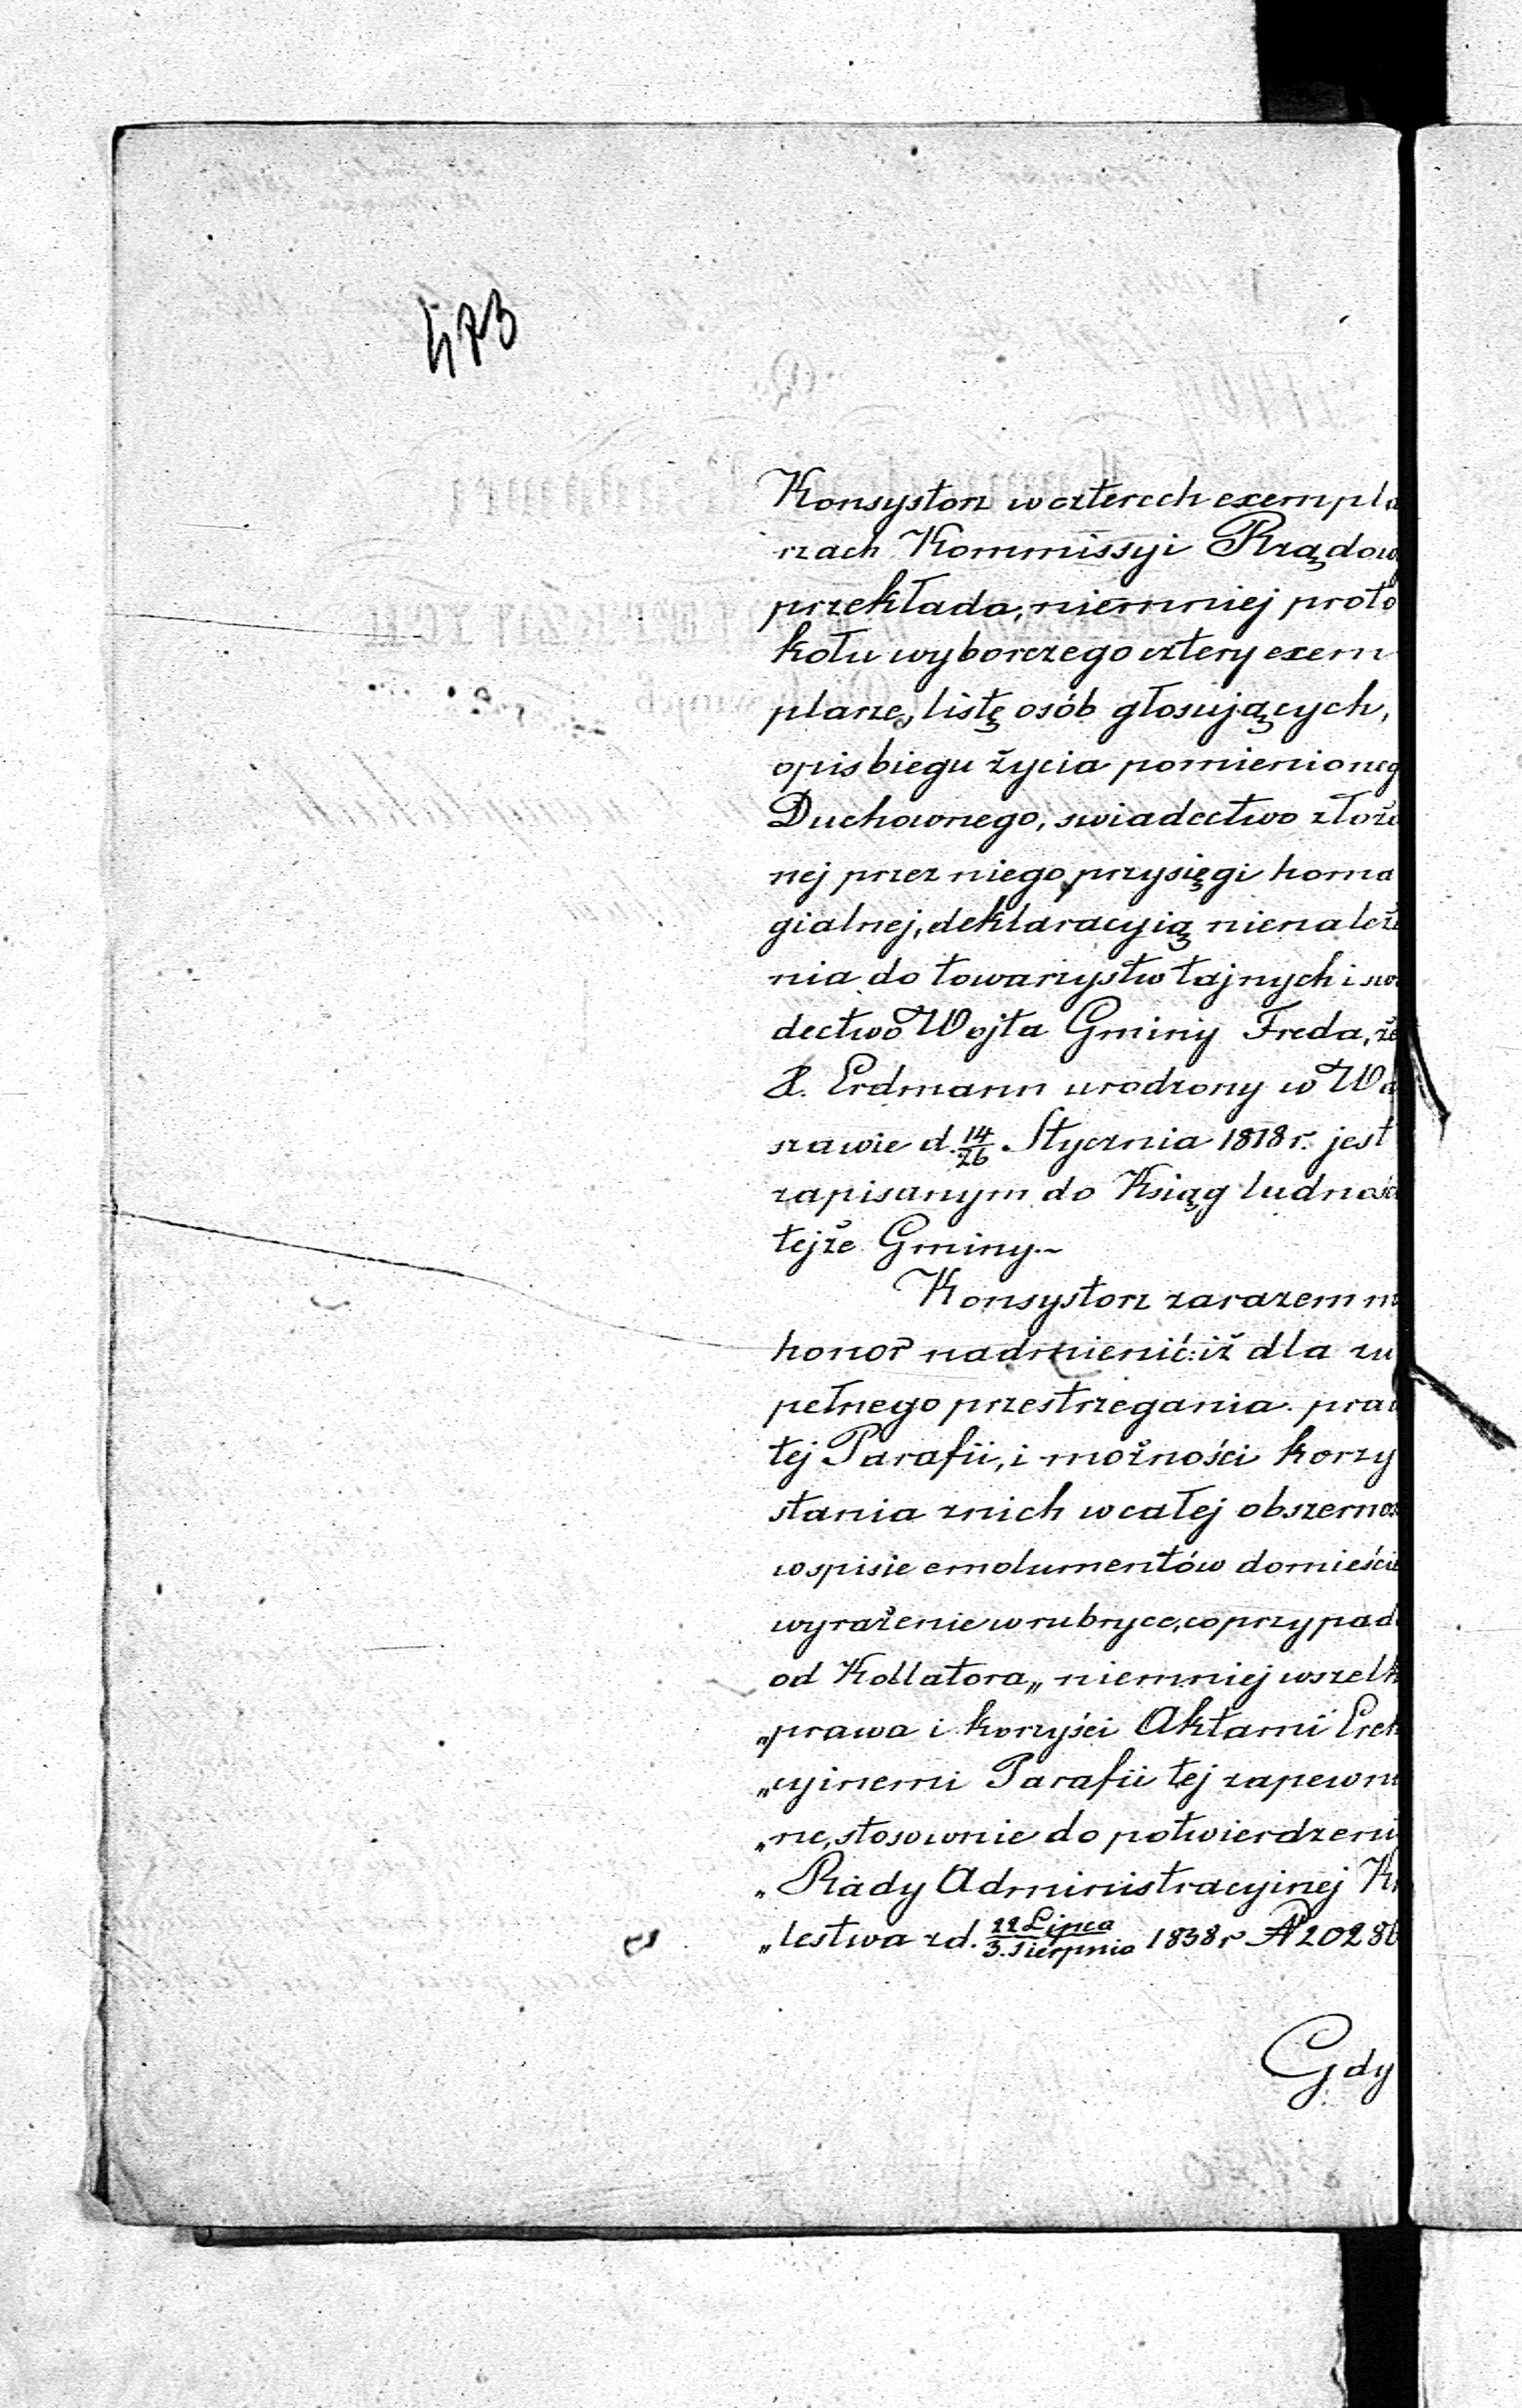 473
Konsystorz w czterech exempla
rzach Kommissyi Rządow
przekłada, niemniej proto
kołu wyborczego cztery exem
plarze, listę osób głosujących,
opis biegu życia pomienioneg
Duchownego, swiadectwo złożo
nej przez niego przysięgi homa
gialnej, deklaracyią nienależe
nia do towarzystw tajnych i
dectwo Wojta Gminy Freda, że
X. Erdmann urodzony w Wa
szawie d. 14/26 Stycznia 1818 r. jest
zapisanym do Ksiąg ludnośc
tejże Gminy.~
Konsystorz zarazem m
honor nadmienić: iż dla zu
pełnego przestrzegania praw
tej Parafii, i możności korzy
stania z nich w całej obszernoś
w spisie emolumentów domieście
wyrażenie w rubryce, co przypad
od Kollatora „ niemniej wszelk
„prawa i korzyści Aktami Erek
„cyjnemi Parafii tej zapewni
„ne, stosownie do potwierdzeni
„Rady Administracyjnej Kr
„lestwa z d. 22 Lipca/3. Sierpnia 1838 r № 20286
Gdy